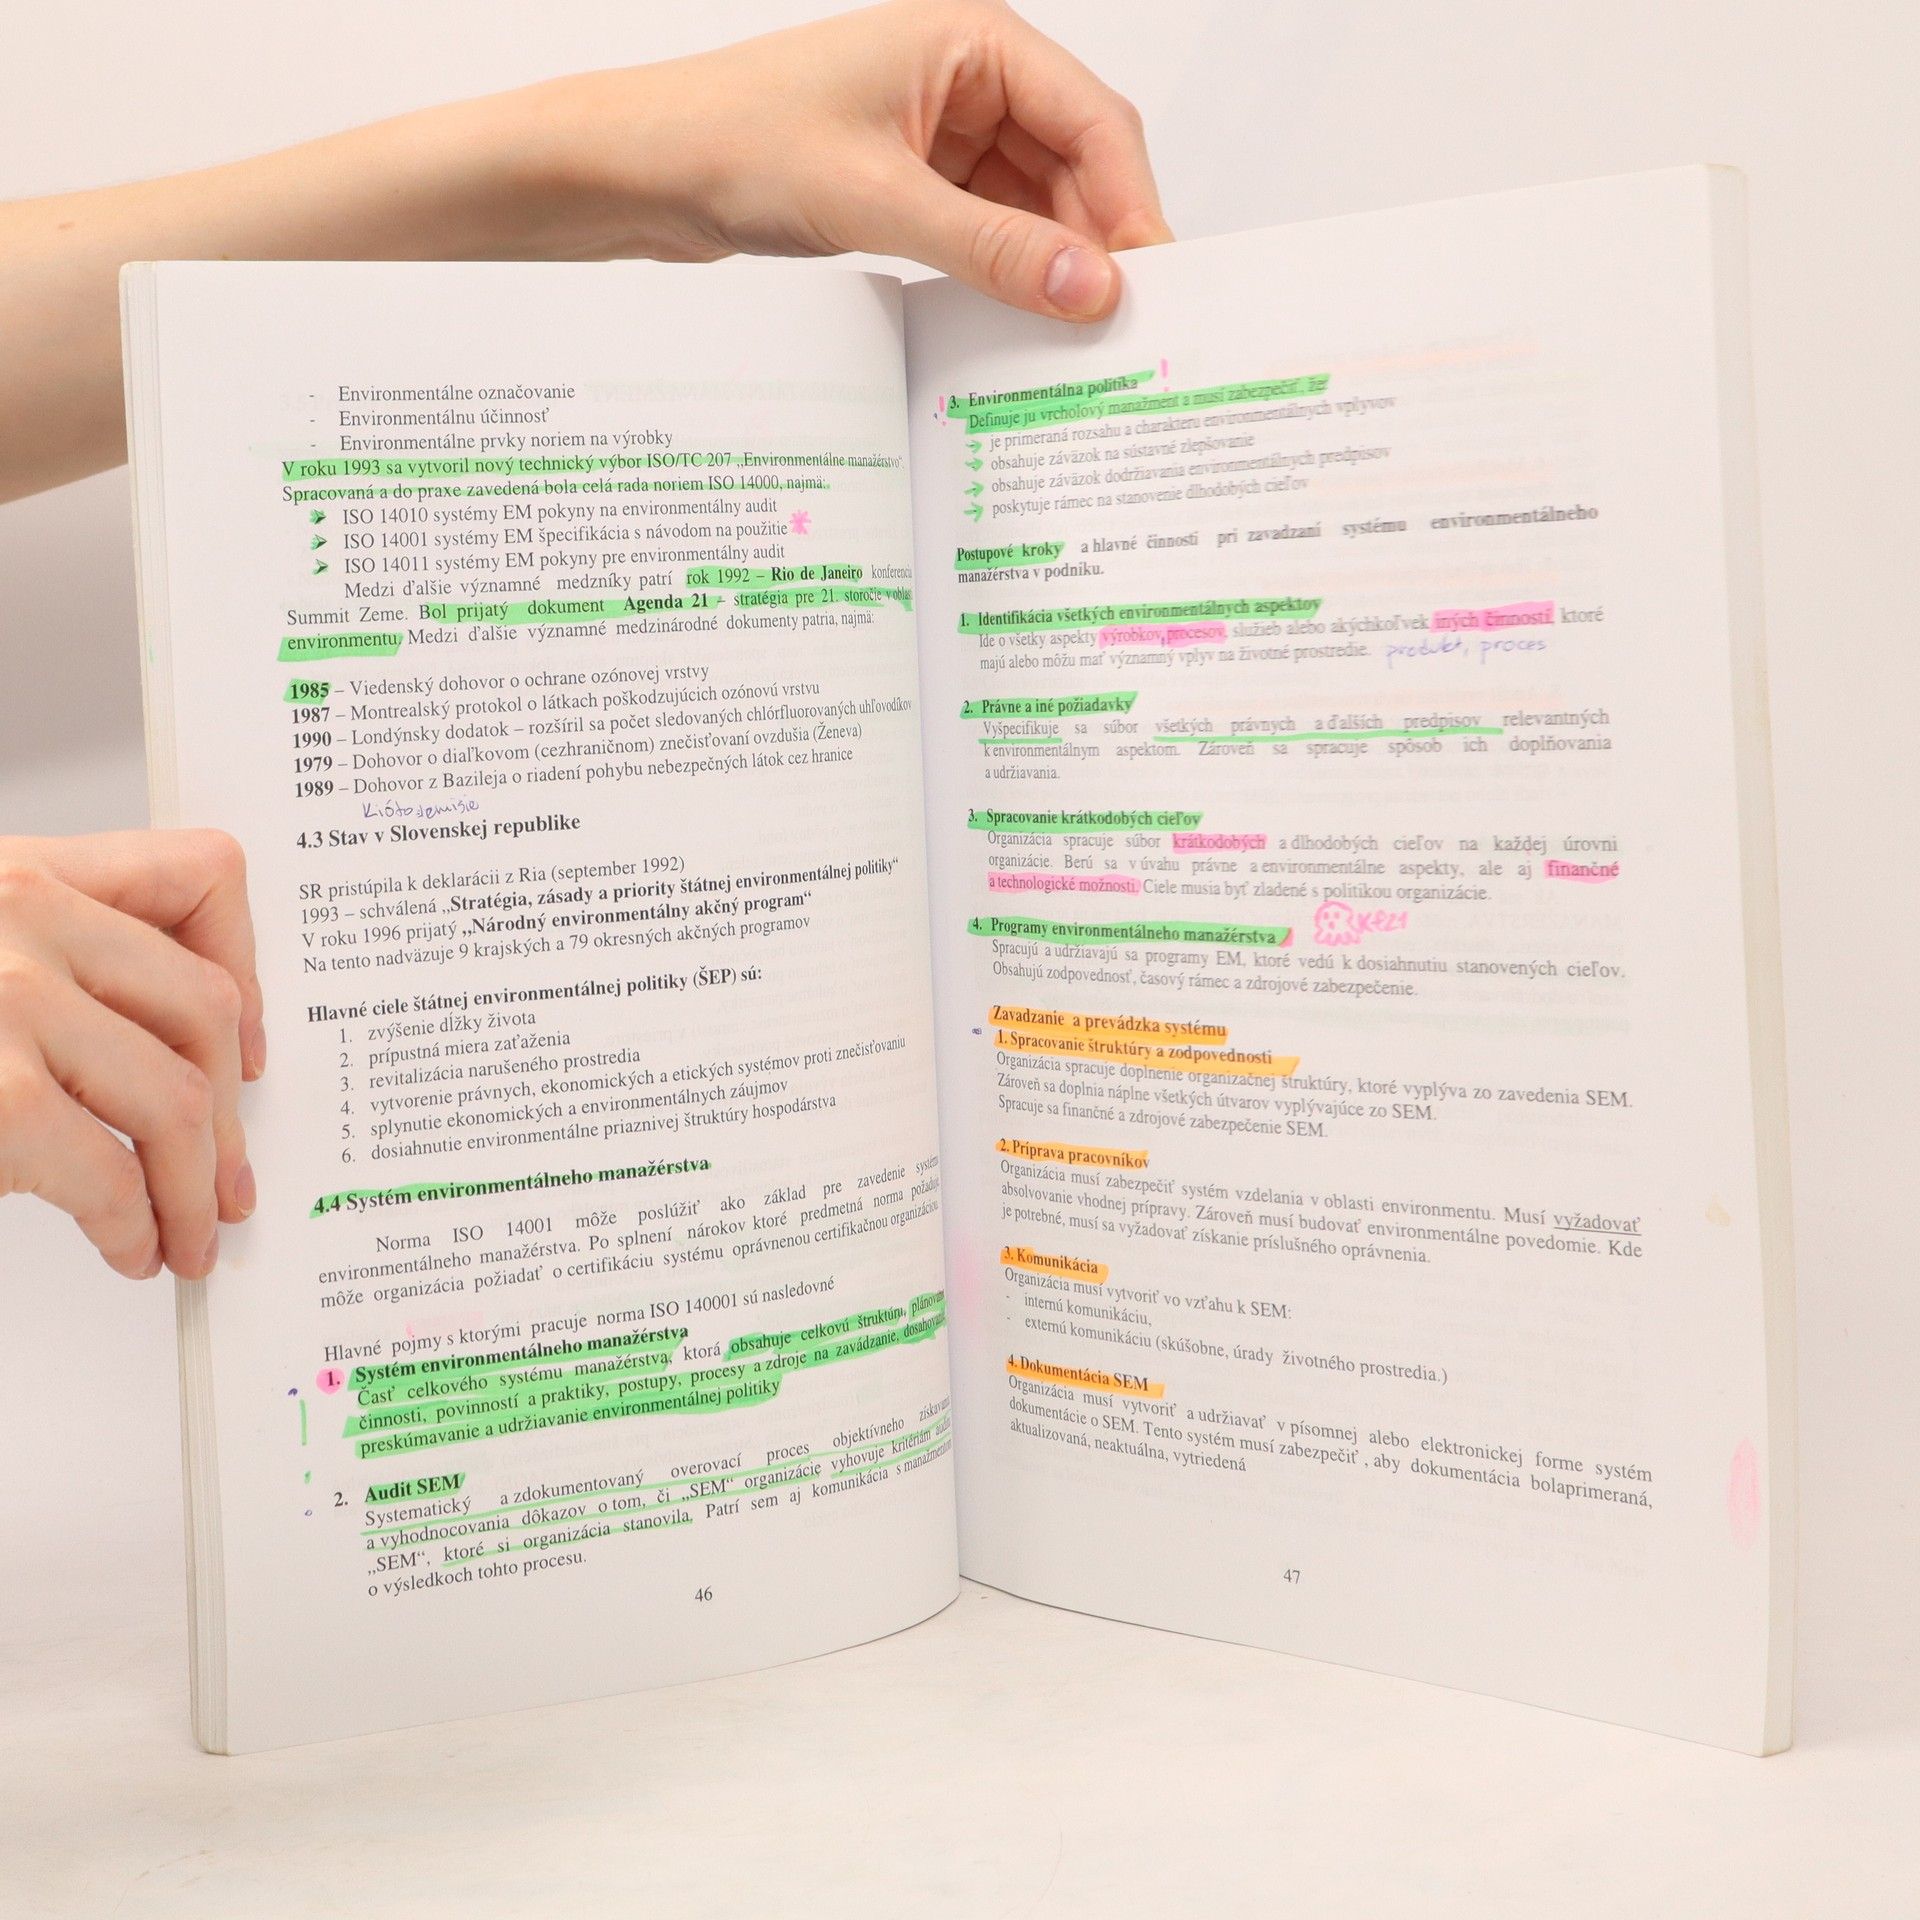 - Environmentálne označovanie
- Environmentálnu účinnosť
- Environmentálne prvky noriem na výrobky
V roku 1993 sa vytvoril nový technický výbor ISO/TC 207 „Environmentálne manažérstvo“.
Spracovaná a do praxe zavedená bola celá rada noriem ISO 14000, najmä:
➢ ISO 14010 systémy EM pokyny na environmentálny audit
➢ ISO 14001 systémy EM špecifikácia s návodom na použitie *
➢ ISO 14011 systémy EM pokyny pre environmentálny audit
Medzi ďalšie významné medzníky patrí rok 1992 – Rio de Janeiro konferencia
Summit Zeme. Bol prijatý dokument Agenda 21 – stratégia pre 21. storočie v oblasti
environmentu. Medzi ďalšie významné medzinárodné dokumenty patria, najmä:
1985 – Viedenský dohovor o ochrane ozónovej vrstvy
1987 – Montrealský protokol o látkach poškodzujúcich ozónovú vrstvu
1990 – Londýnsky dodatok – rozšíril sa počet sledovaných chlórfluorovaných uhľovodíkov
1979 – Dohovor o diaľkovom (cezhraničnom) znečisťovaní ovzdušia (Ženeva)
1989 – Dohovor z Bazileja o riadení pohybu nebezpečných látok cez hranice
Kióto emisie
4.3 Stav v Slovenskej republike
SR pristúpila k deklarácii z Ria (september 1992)
1993 – schválená „Stratégia, zásady a priority štátnej environmentálnej politiky“
V roku 1996 prijatý „Národný environmentálny akčný program“
Na tento nadväzuje 9 krajských a 79 okresných akčných programov
Hlavné ciele štátnej environmentálnej politiky (ŠEP) sú:
1. zvýšenie dĺžky života
2. prípustná miera zaťaženia
3. revitalizácia narušeného prostredia
4. vytvorenie právnych, ekonomických a etických systémov proti znečisťovaniu
5. splynutie ekonomických a environmentálnych záujmov
6. dosiahnutie environmentálne priaznivej štruktúry hospodárstva
4.4 Systém environmentálneho manažérstva
Norma ISO 14001 môže poslúžiť ako základ pre zavedenie systému
environmentálneho manažérstva. Po splnení nárokov ktoré predmetná norma požaduje
môže organizácia požiadať o certifikáciu systému oprávnenou certifikačnou organizáciou.
Hlavné pojmy s ktorými pracuje norma ISO 140001 sú nasledovné
1. Systém environmentálneho manažérstva
Časť celkového systému manažérstva, ktorá obsahuje celkovú štruktúru, plánovanie
činnosti, povinností a praktiky, postupy, procesy a zdroje na zavádzanie, dosahovanie
preskúmavanie a udržiavanie environmentálnej politiky
2. Audit SEM
Systematický a zdokumentovaný overovací proces objektívneho získavania
a vyhodnocovania dôkazov o tom, či „SEM“ organizácie vyhovuje kritériám auditu
„SEM“, ktoré si organizácia stanovila. Patrí sem aj komunikácia s manažmentom
o výsledkoch tohto procesu.
46
! 3. Environmentálna politika !
Definuje ju vrcholový manažment a musí zabezpečiť, že:
→ je primeraná rozsahu a charakteru environmentálnych vplyvov
→ obsahuje záväzok na sústavné zlepšovanie
→ obsahuje záväzok dodržiavania environmentálnych predpisov
→ poskytuje rámec na stanovenie dlhodobých cieľov
Postupové kroky a hlavné činnosti pri zavadzaní systému environmentálneho
manažérstva v podniku.
1. Identifikácia všetkých environmentálnych aspektov
Ide o všetky aspekty výrobkov, procesov, služieb alebo akýchkoľvek iných činností, ktoré
majú alebo môžu mať významný vplyv na životné prostredie. produkt, proces
2. Právne a iné požiadavky
Vyšpecifikuje sa súbor všetkých právnych a ďalších predpisov relevantných
k environmentálnym aspektom. Zároveň sa spracuje spôsob ich doplňovania
a udržiavania.
3. Spracovanie krátkodobých cieľov
Organizácia spracuje súbor krátkodobých a dlhodobých cieľov na každej úrovni
organizácie. Berú sa v úvahu právne a environmentálne aspekty, ale aj finančné
a technologické možnosti. Ciele musia byť zladené s politikou organizácie.
4. Programy environmentálneho manažérstva
Spracujú a udržiavajú sa programy EM, ktoré vedú k dosiahnutiu stanovených cieľov.
Obsahujú zodpovednosť, časový rámec a zdrojové zabezpečenie.
Zavadzanie a prevádzka systému
1. Spracovanie štruktúry a zodpovednosti
Organizácia spracuje doplnenie organizačnej štruktúry, ktoré vyplýva zo zavedenia SEM.
Zároveň sa doplnia náplne všetkých útvarov vyplývajúce zo SEM.
Spracuje sa finančné a zdrojové zabezpečenie SEM.
2. Príprava pracovníkov
Organizácia musí zabezpečiť systém vzdelania v oblasti environmentu. Musí vyžadovať
absolvovanie vhodnej prípravy. Zároveň musí budovať environmentálne povedomie. Kde
je potrebné, musí sa vyžadovať získanie príslušného oprávnenia.
3. Komunikácia
Organizácia musí vytvoriť vo vzťahu k SEM:
- internú komunikáciu,
- externú komunikáciu (skúšobne, úrady životného prostredia.)
4. Dokumentácia SEM
Organizácia musí vytvoriť a udržiavať v písomnej alebo elektronickej forme systém
dokumentácie o SEM. Tento systém musí zabezpečiť , aby dokumentácia bolaprimeraná,
aktualizovaná, neaktuálna, vytriedená
47